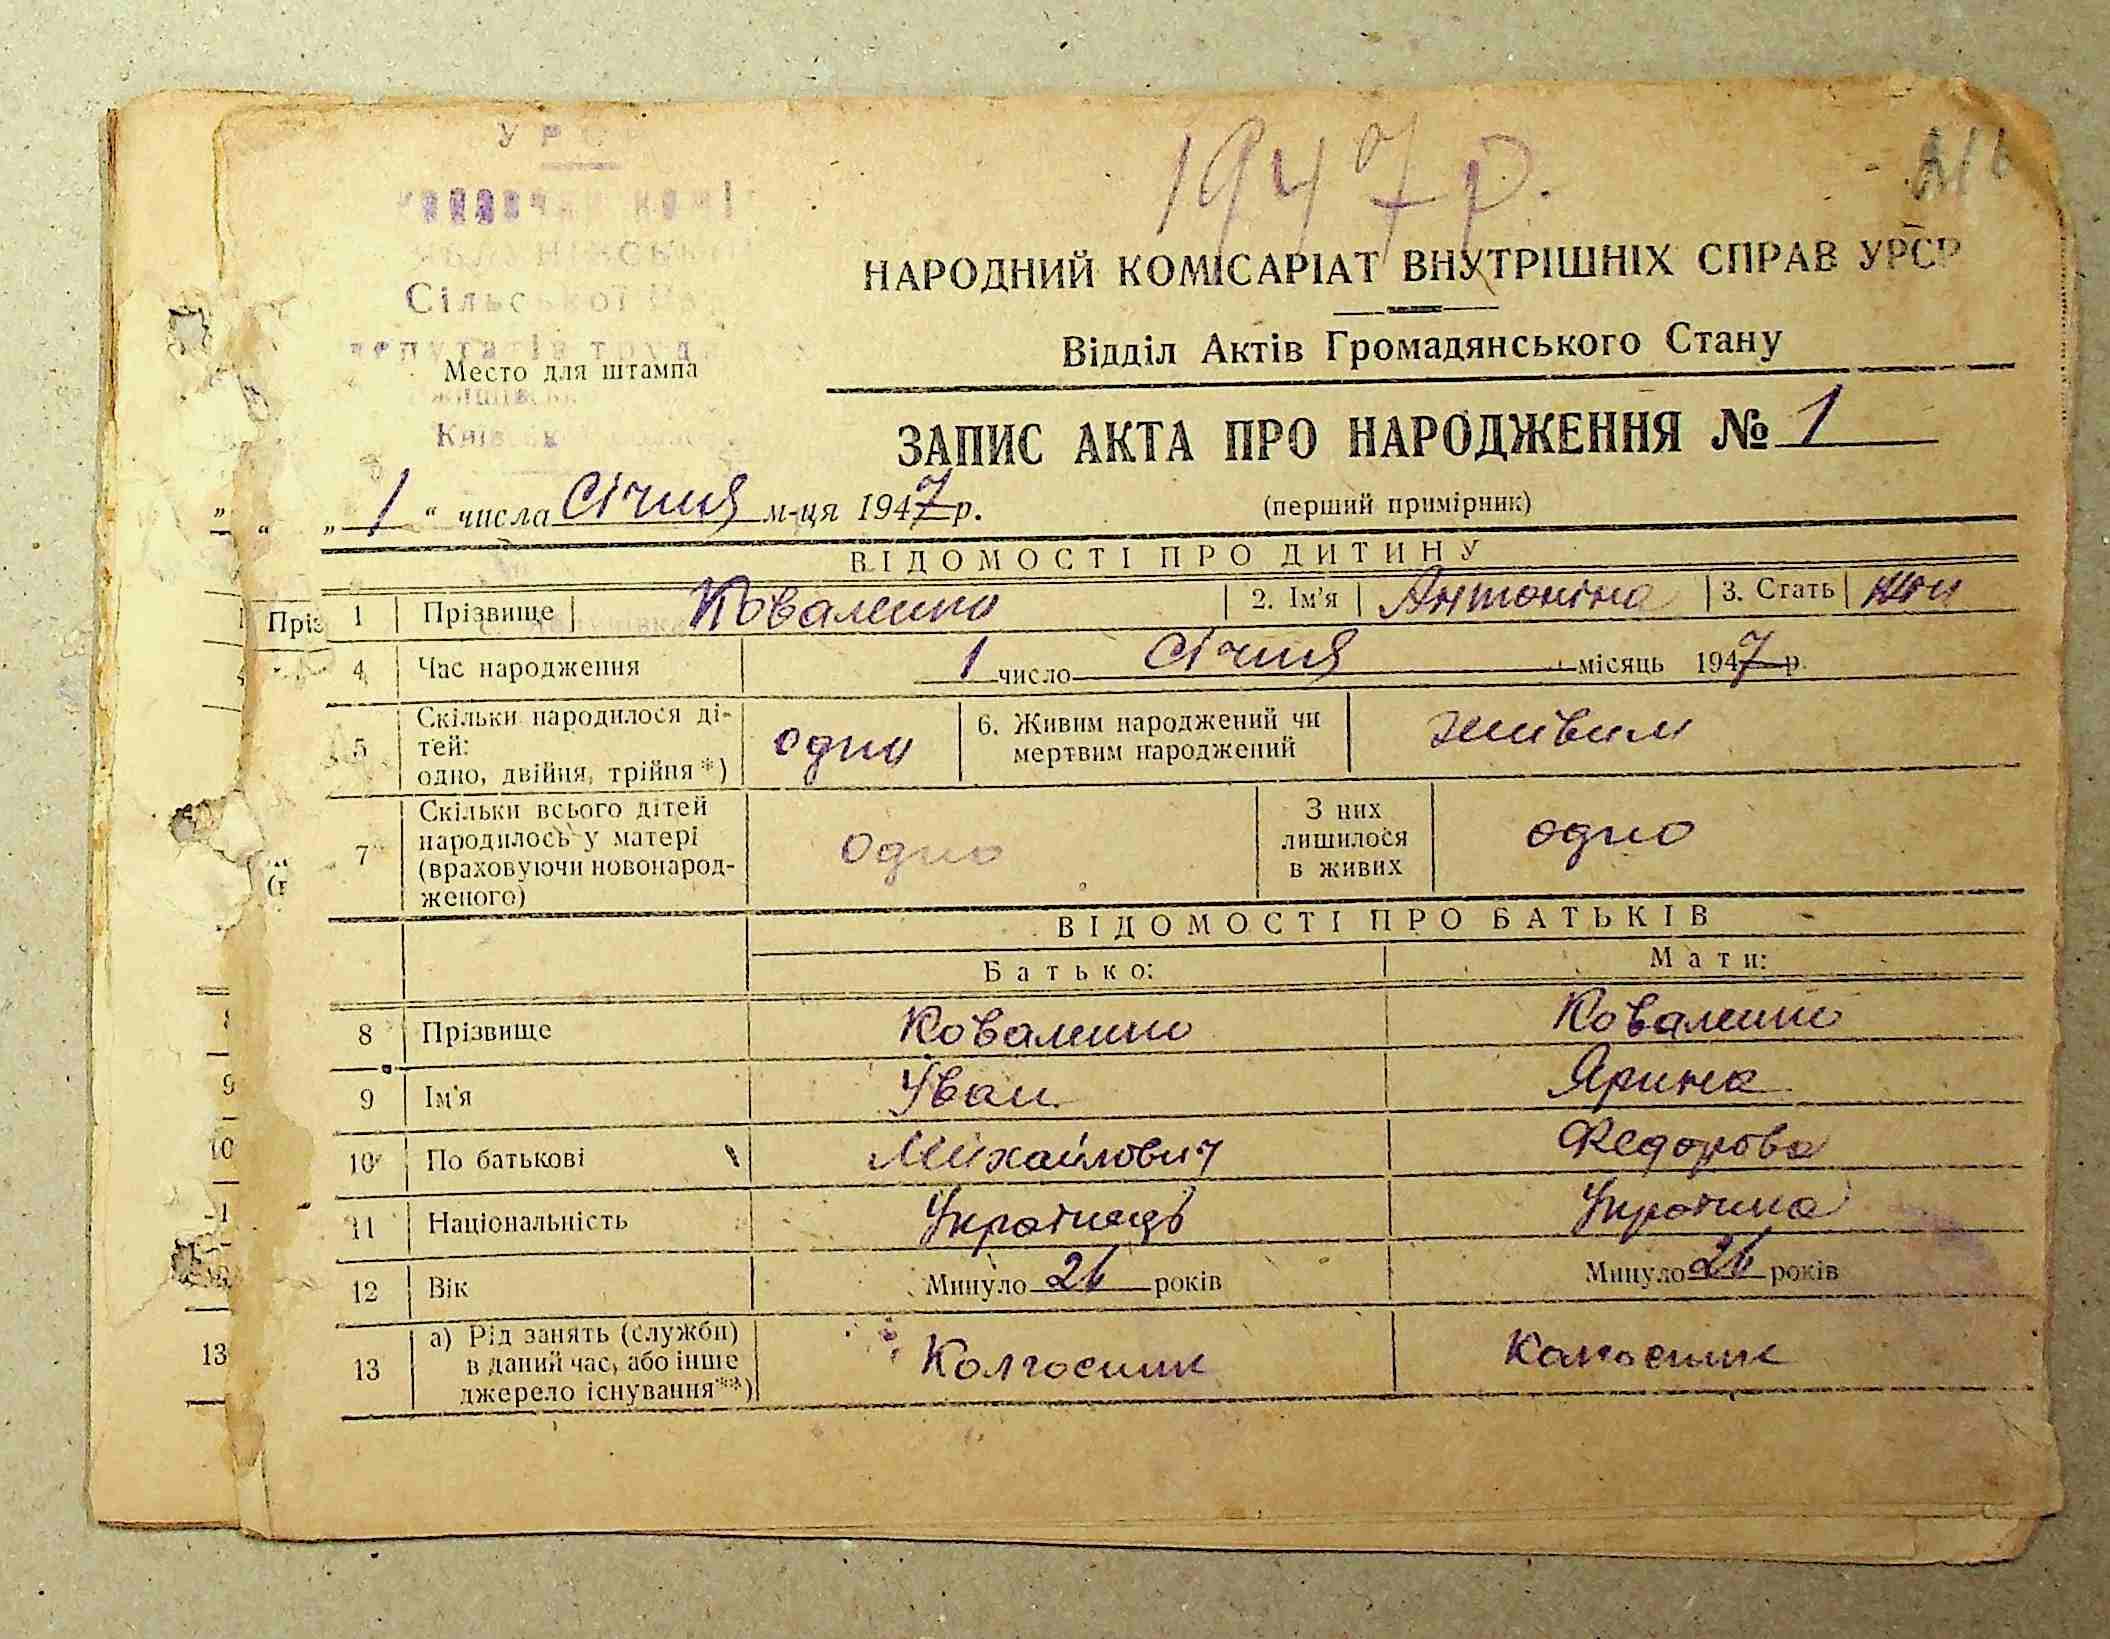 УРСР
Сільської
депутатів труд
Место для штампа
1947 р.
НАРОДНИЙ КОМІСАРІАТ ВНУТРІШНІХ СПРАВ УРСР
Відділ Актів Громадянського Стану
ЗАПИС АКТА ПРО НАРОДЖЕННЯ № 1
„ 1 “ числа Січня м-ця 1947 р.
(перший примірник)
ВІДОМОСТІ ПРО ДИТИНУ
1 Прізвище Коваленко 2. Ім'я Антоніна 3. Стать жін
4 Час народження 1 число Січня місяць 1947 р.
5 Скільки народилося ді-
тей:
одно, двійня, трійня*)
одно
6. Живим народжений чи
мертвим народжений
живим
7 Скільки всього дітей
народилось у матері
(враховуючи новонарод-
женого)
одно
З них
лишилося
в живих
одно
ВІДОМОСТІ ПРО БАТЬКІВ
Батько: Мати:
8 Прізвище Коваленко Коваленко
9 Ім'я Іван Ярина
10 По батькові Михайлович Федорова
11 Національність Українець Українка
12 Вік Минуло 26 років Минуло 26 років
13 а) Рід занять (служби)
в даний час, або інше
джерело існування**)
Колгоспник Колгоспник